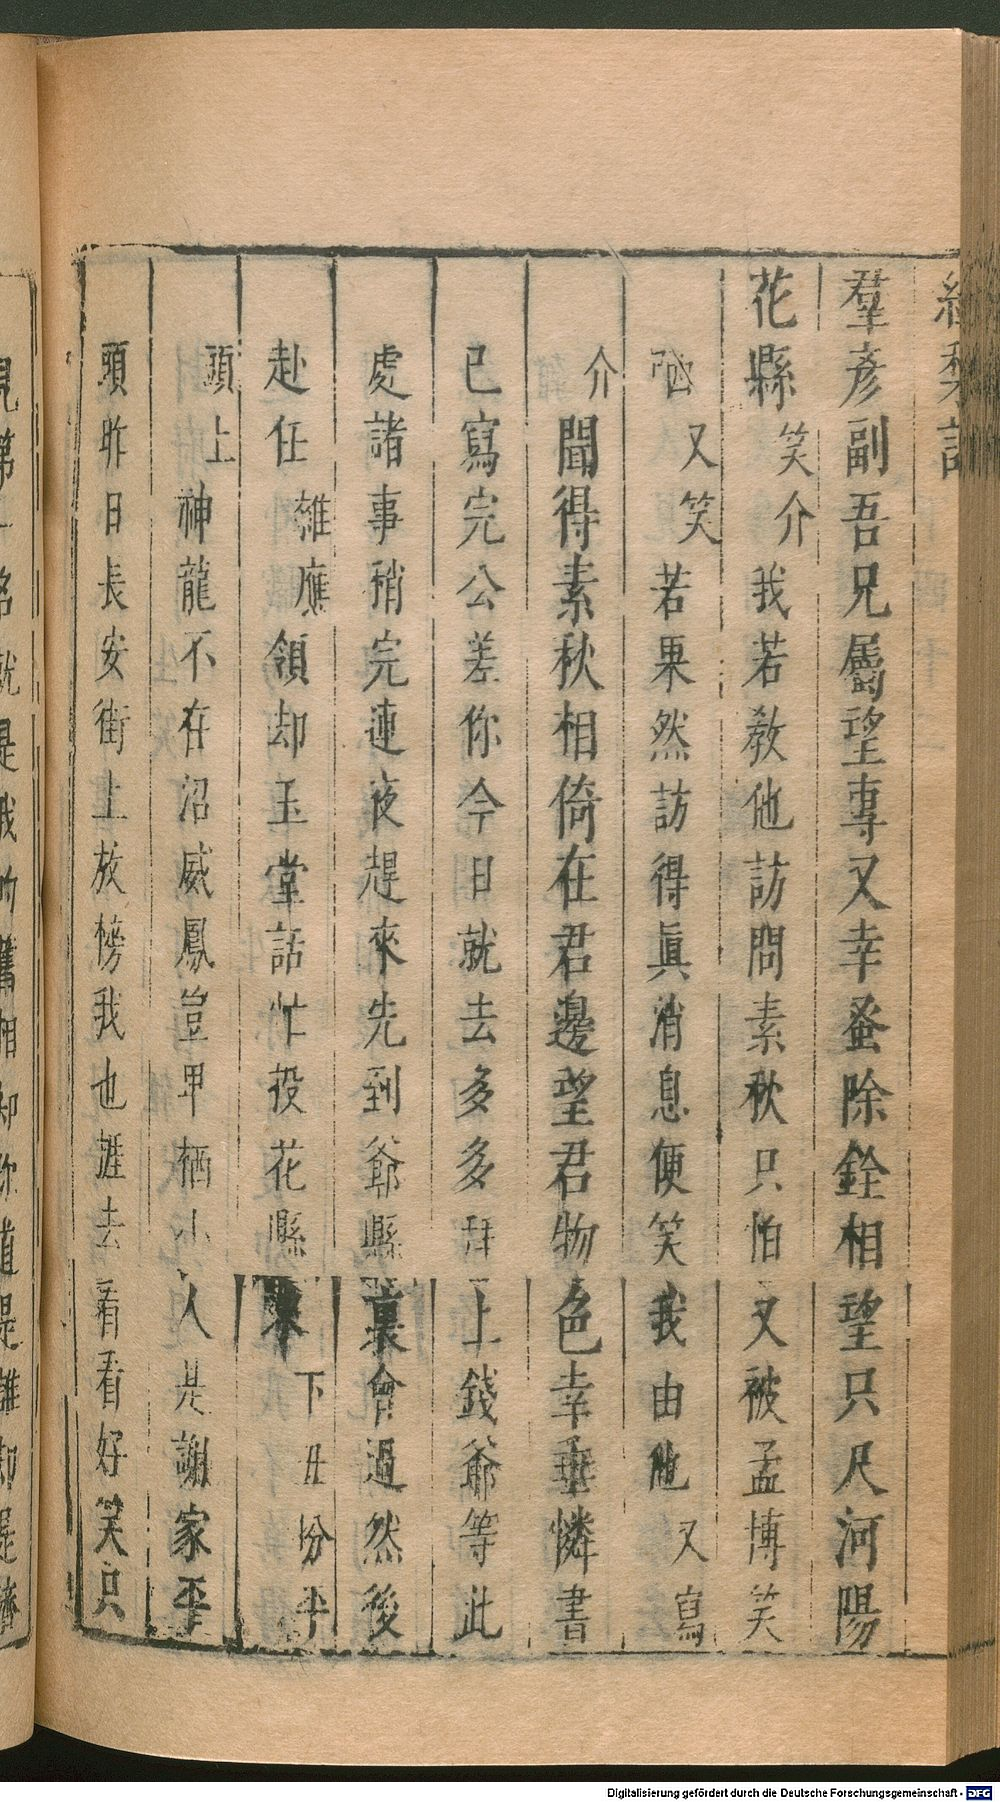 羣彥副吾兄屬望專又幸蚤除銓相望只尺河陽
花縣笑介我若敎他訪問素秋只怕又被孟博笑
又笑若果然訪得眞消息便笑我由他又寫
介聞得素秋相倚在君邊望君物色幸垂憐書
已寫完公差你今日就去多多上錢爺等此
處諸事稍完連夜趕來先到爺縣裏會過然後
赴任雜應領却玉堂話忙投花縣來下丑扮平
頭上神龍不在沼威鳳豈甲栖小人是謝家平
頭昨日長安街上放榜我也捱去看看好笑只
Digitalisierung gefördert durch die Deutsche Forschungsgemeinschaft - DFG